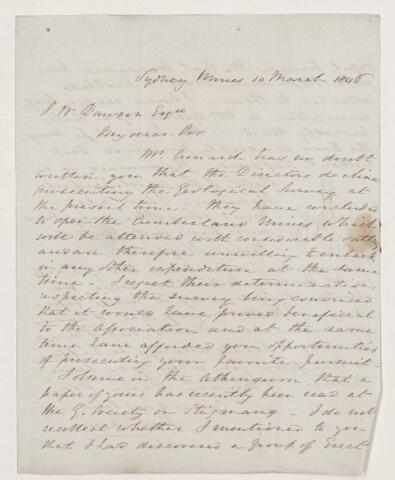 Sydney Mines 10 March 1846
J. W. Dawson Esqre
My dear Sir
Mr. Cunard has no doubt
written you that the Directors decline
prosecuting the Geological survey at
the present time. They have concluded
to open the Cumberland Mines which
will be attended with considerable outlay
and are therefore unwilling to embark
in any other expenditure at the same
time - I regret their determination
respecting the survey being convinced
that it would have proved beneficial
to the association and at the same
time have afforded you opportunities
of prosecuting your favorite pursuit -
I observe in the Athenaeum that a
paper of yours has recently been read at
the G. Society on Stigmaria - I do not
recollect whether I mentioned to you
that I had discovered a group of Erect